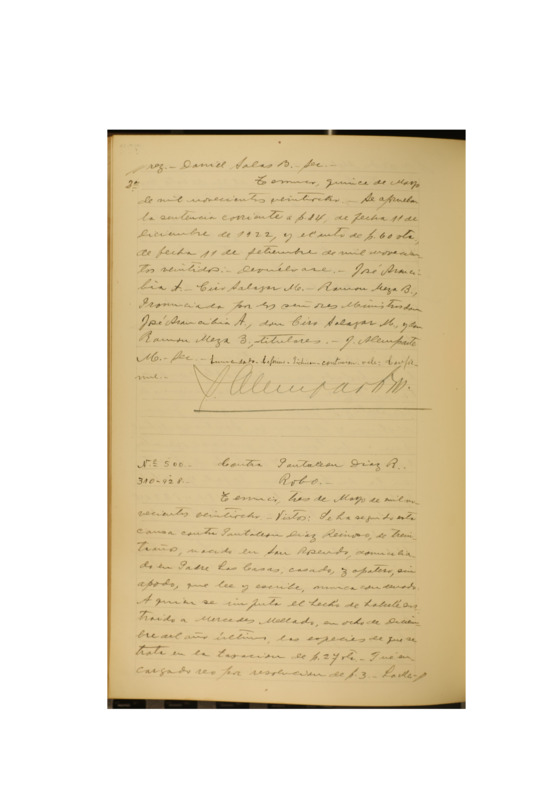 rez.- Daniel Salas B. Sec.-
2ª Temuco, quince de Mayo
de mil novecientos veintiocho.- Se aprueba
la sentencia corriente a f. 84, de fecha 11 de
Diciembre de 1922, y el auto de f. 60 vta,
de fecha 11 de Setiembre de mil novecien-
tos veintidos.- Devuélvase.- José Aranci-
bia A.- Ciro Salazar M.- Ramon Meza B.,
Pronunciada por los señores Ministros don
José Arancibia A., don Ciro Salazar M. y don
Ramon Meza B, titulares.- J. Alemparte
M.- Sec.-
me.-
J Alemparte M.
N.º 500.- Contra Pantaleon Diaz R..
310-928.- Robo.-
Temuco, tres de Mayo de mil no-
vecientos veintiocho.- Vistos: Se ha seguido esta
causa contra Pantaleon Diaz Reinoso, de trein-
ta años, nacido en San Rosendo, domicilia-
do en Padre Las Casas, casado, zapatero, sin
apodo, que lee y escribe, nunca condenado.
A quien se imputa el hecho de haberle sus-
traido a Mercedes Mellado, en ocho de Diciem-
bre del año último, las especies de que se
trata en la tasacion de f. 27 vta.- Fué en-
cargado reo por resolucion de f. 3.-